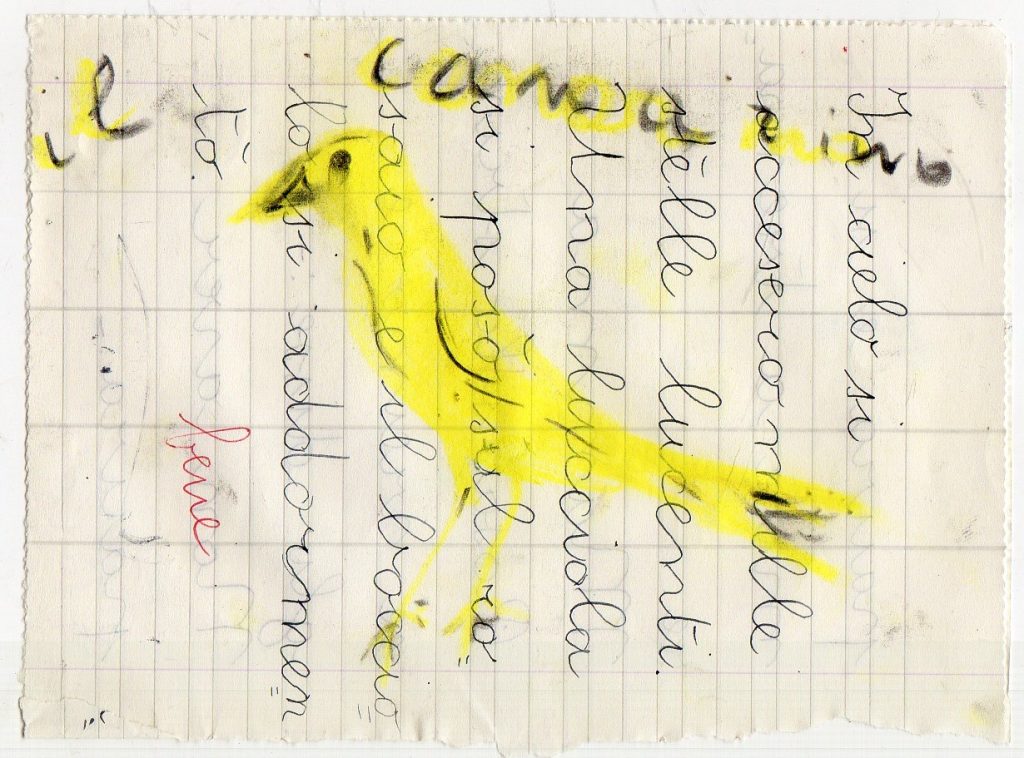 il canarino
In cielo si
accesero mille
stelle lucenti.
Una lucciola
si posò sul ro=
saio e il boccio=
lo si addormen=
tò
bene